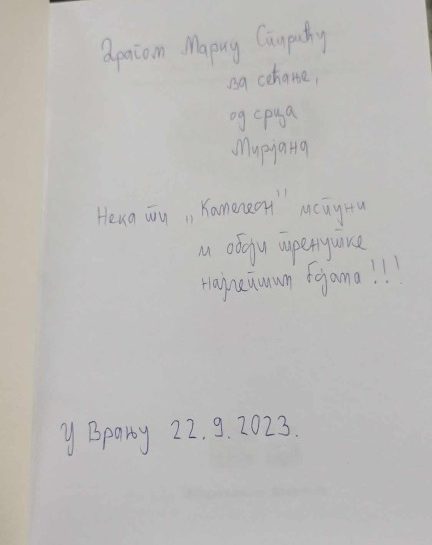 Драгом Марку Спирићу
за сећање,
од срца
Мирјана
Нека ти „Капегеон" испуни
и обоји тренутке
најлепшим бојама!!!
У Врању 22.9.2023.